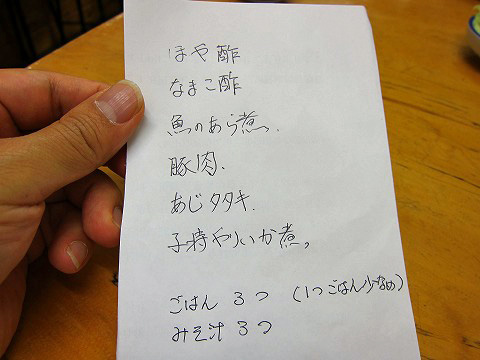 ほや酢
なまこ酢
魚のあら煮、
豚肉、
あじタタキ、
子持やりいか煮。
ごはん 3つ (1つごはん少なめ)
みそ汁 3つ